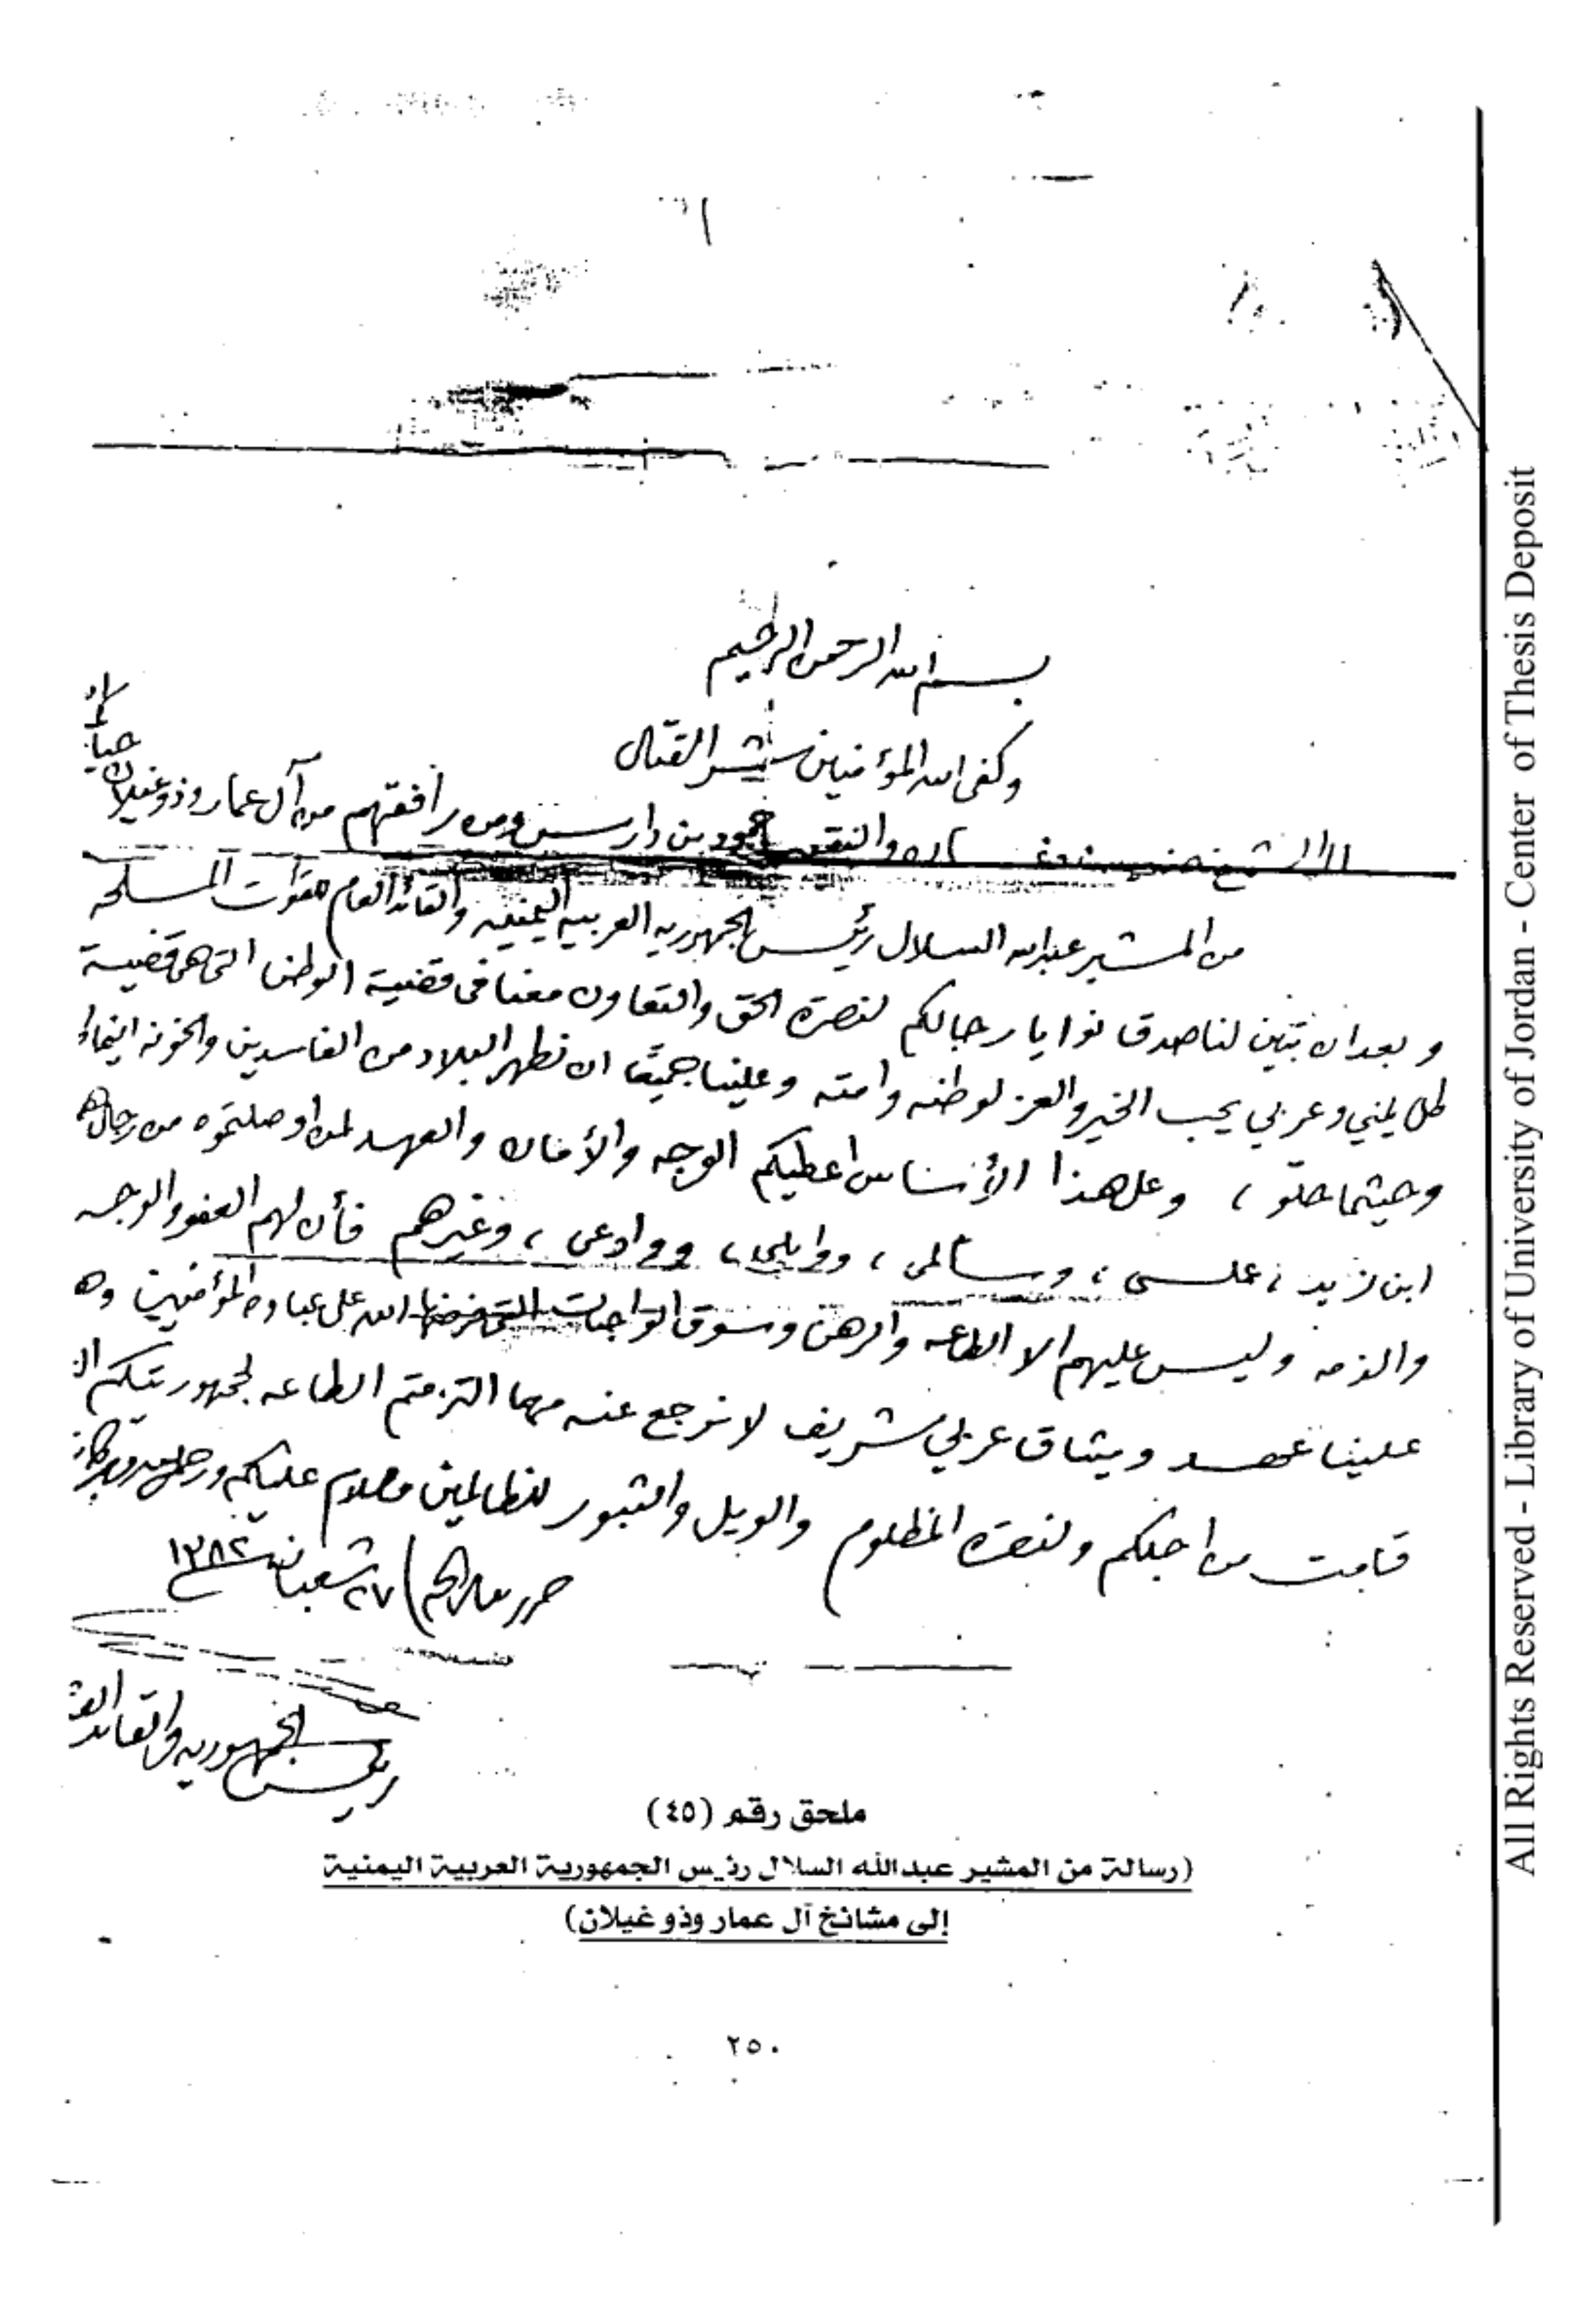 بسم الله الرحمن الرحيم
وكفى الله المؤمنين شر القتال
والنقيب حمود بن دارس ومن رافقتهم من آل عمار وذو غيلان حيا
من المشير عبدالله السلال رئيس الجمهوريه العربيه اليمنيه والقائد العام للقوات المسلحه
وبعد ان تبين لنا صدق نوايا رجالكم لنصرة الحق والتعاون معنا في قضية الوطن التي هي قضية
كل يمني وعربي يحب الخير والعز لوطنه وامته وعلينا جميعًا ان نطهر البلاد من الفاسدين والخونه اينما
وحيثما حلو ، وعلى هذا الأساس اعطيكم الوجه والأمان والعهد لمن اوصلتموه من رجال
ابن زيد ، علسي ، وسالمي ، ووايلي ، ووادعي ، وغيرهم فأن لهم العفو والوجه
والذمه وليس عليهم الا الطاعه والرهن وسوق الواجبات التي فرضها الله على عباده المؤمنين وه
علينا عهد وميثاق عربي شريف لا نرجع عنه مهما التزمتم الطاعه لجمهوريتكم ال
قامت من اجلكم ولنصرة المظلوم والويل والثبور للظالمين وسلام عليكم ورحمة الله وبركاته
حرر ٢٧ شعبان سنة ١٣٨٢
رئيس الجمهوريه والقائد
ملحق رقم (٤٥)
(رسالة من المشير عبدالله السلال رئيس الجمهورية العربية اليمنية
إلى مشائخ آل عمار وذو غيلان)
٢٥٠
All Rights Reserved - Library of University of Jordan - Center of Thesis Deposit